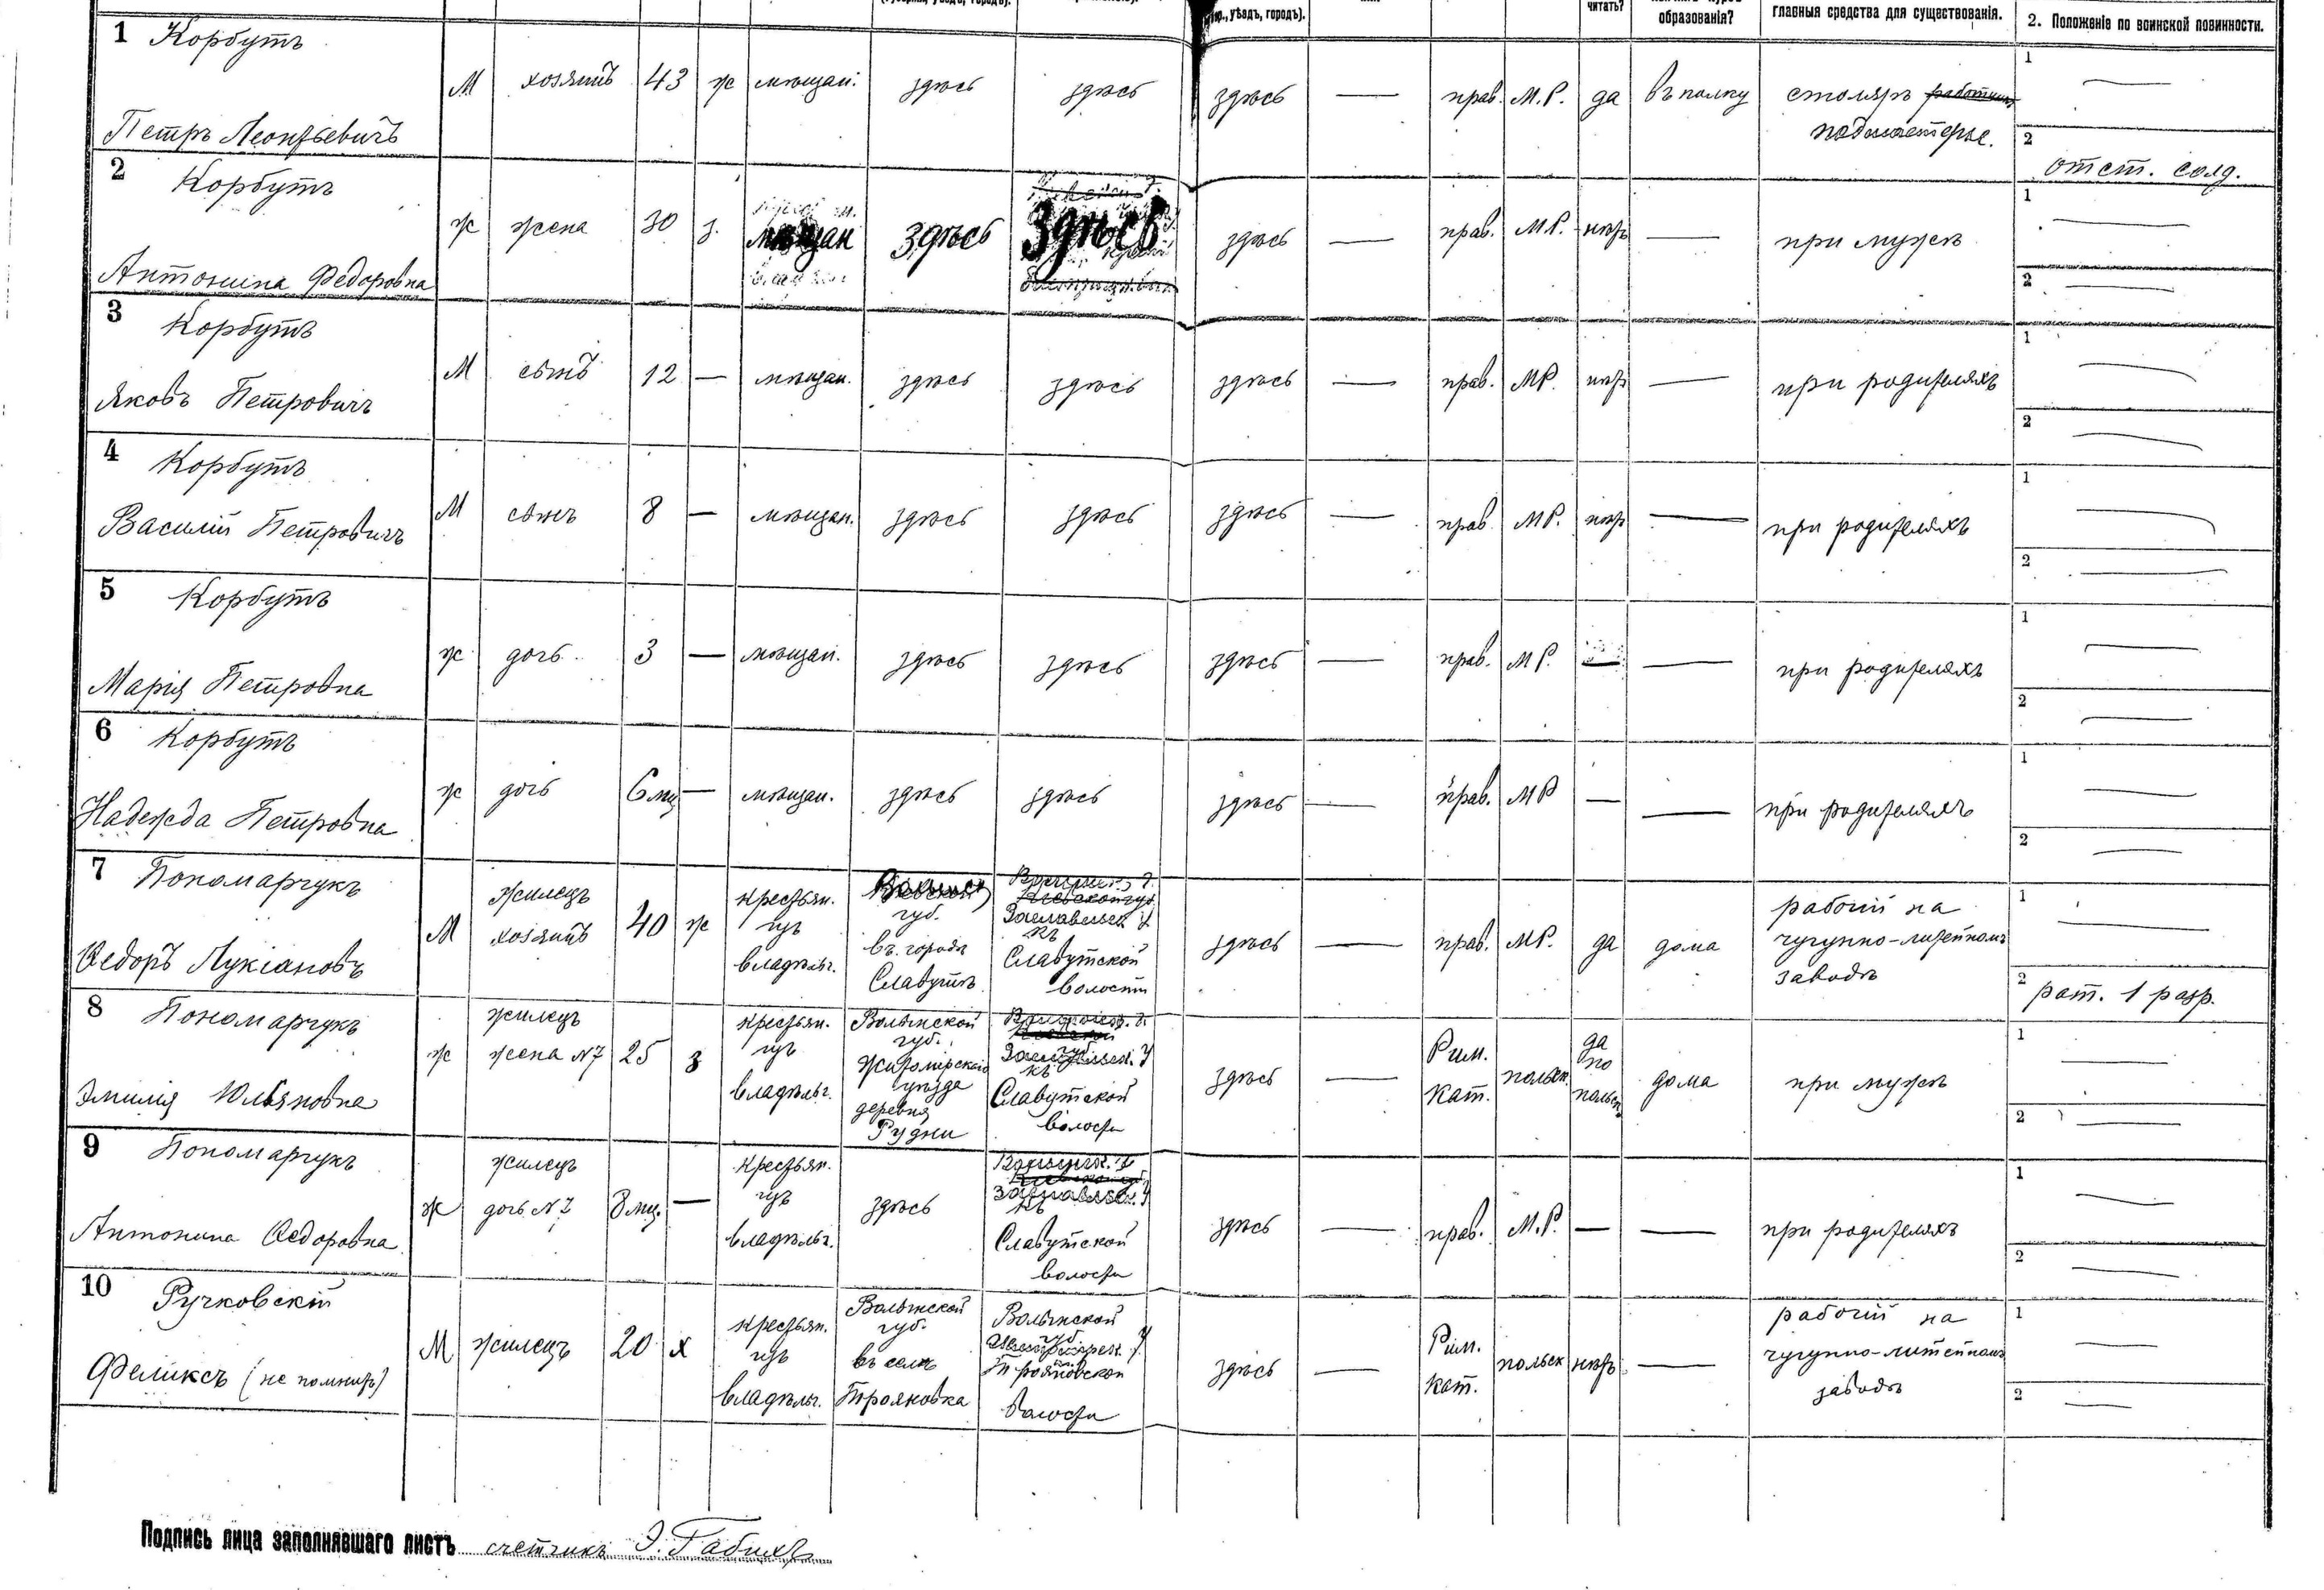 уѣздъ, городъ).
читать?
образованія?
главныя средства для существованія.
2. Положеніе по воинской повинности.
1 Корбутъ
Петръ Леонтьевичъ
М хозяинъ 43 ж мѣщан. здѣсь здѣсь здѣсь — прав. М.Р. да въ полку столяръ
подмастерье.
1 —
2 отст. солд.
2 Корбутъ
Антонина Федоровна
ж жена 30 з. мѣщан здѣсь здѣсь здѣсь — прав. М.Р. нѣтъ — при мужѣ
1 —
2 —
3 Корбутъ
Яковъ Петровичъ
М сынъ 12 — мѣщан. здѣсь здѣсь здѣсь — прав. МР. нѣтъ — при родителяхъ
1 —
2 —
4 Корбутъ
Василій Петровичъ
М сынъ 8 — мѣщан. здѣсь здѣсь здѣсь — прав. МР. нѣтъ — при родителяхъ
1 —
2 —
5 Корбутъ
Марія Петровна
ж дочь 3 — мѣщан. здѣсь здѣсь здѣсь — прав. МР. — — при родителяхъ
1 —
2 —
6 Корбутъ
Надежда Петровна
ж дочь 6 мц — мѣщан. здѣсь здѣсь здѣсь — прав. МР — — при родителяхъ
1 —
2 —
7 Пономарчукъ
Ѳедоръ Лукіановъ
М
жилецъ
хозяинъ
40 ж
крестьян.
изъ
владѣльч.
губ.
въ городѣ
Славутѣ
Заславльск. у
Славутской
волости
здѣсь — прав. МР. да дома
рабочій на
чугунно-литейномъ
заводѣ
1 —
2 рат. 1 разр.
8 Пономарчукъ
Эмилія Юльяновна
ж
жилецъ
жена №7
25 з
крестьян.
изъ
владѣльч.
Волынской
губ.
Житомірскаго
уѣзда
деревня
Рудни
Славутской
волости
здѣсь —
Рим.
кат.
польск.
да
по
польск
дома при мужѣ
1 —
2 —
9 Пономарчукъ
Антонина Ѳедоровна
ж
жилецъ
дочь №7
8 мц. —
крестьян.
изъ
владѣльч.
здѣсь
Славутской
волости
здѣсь — прав. М.Р. — — при родителяхъ
1 —
2 —
10 Ручковскій
Феликсъ (не помнитъ)
М жилецъ 20 х
крестьян.
изъ
владѣльч.
Волынской
губ.
въ селѣ
Трояновка
Волынской
губ.
Трояновской
волости
здѣсь —
Рим.
кат.
польск нѣтъ —
рабочій на
чугунно-литейномъ
заводѣ
1 —
2 —
Подпись лица заполнявшаго листъ счетчикъ Э. Габихъ